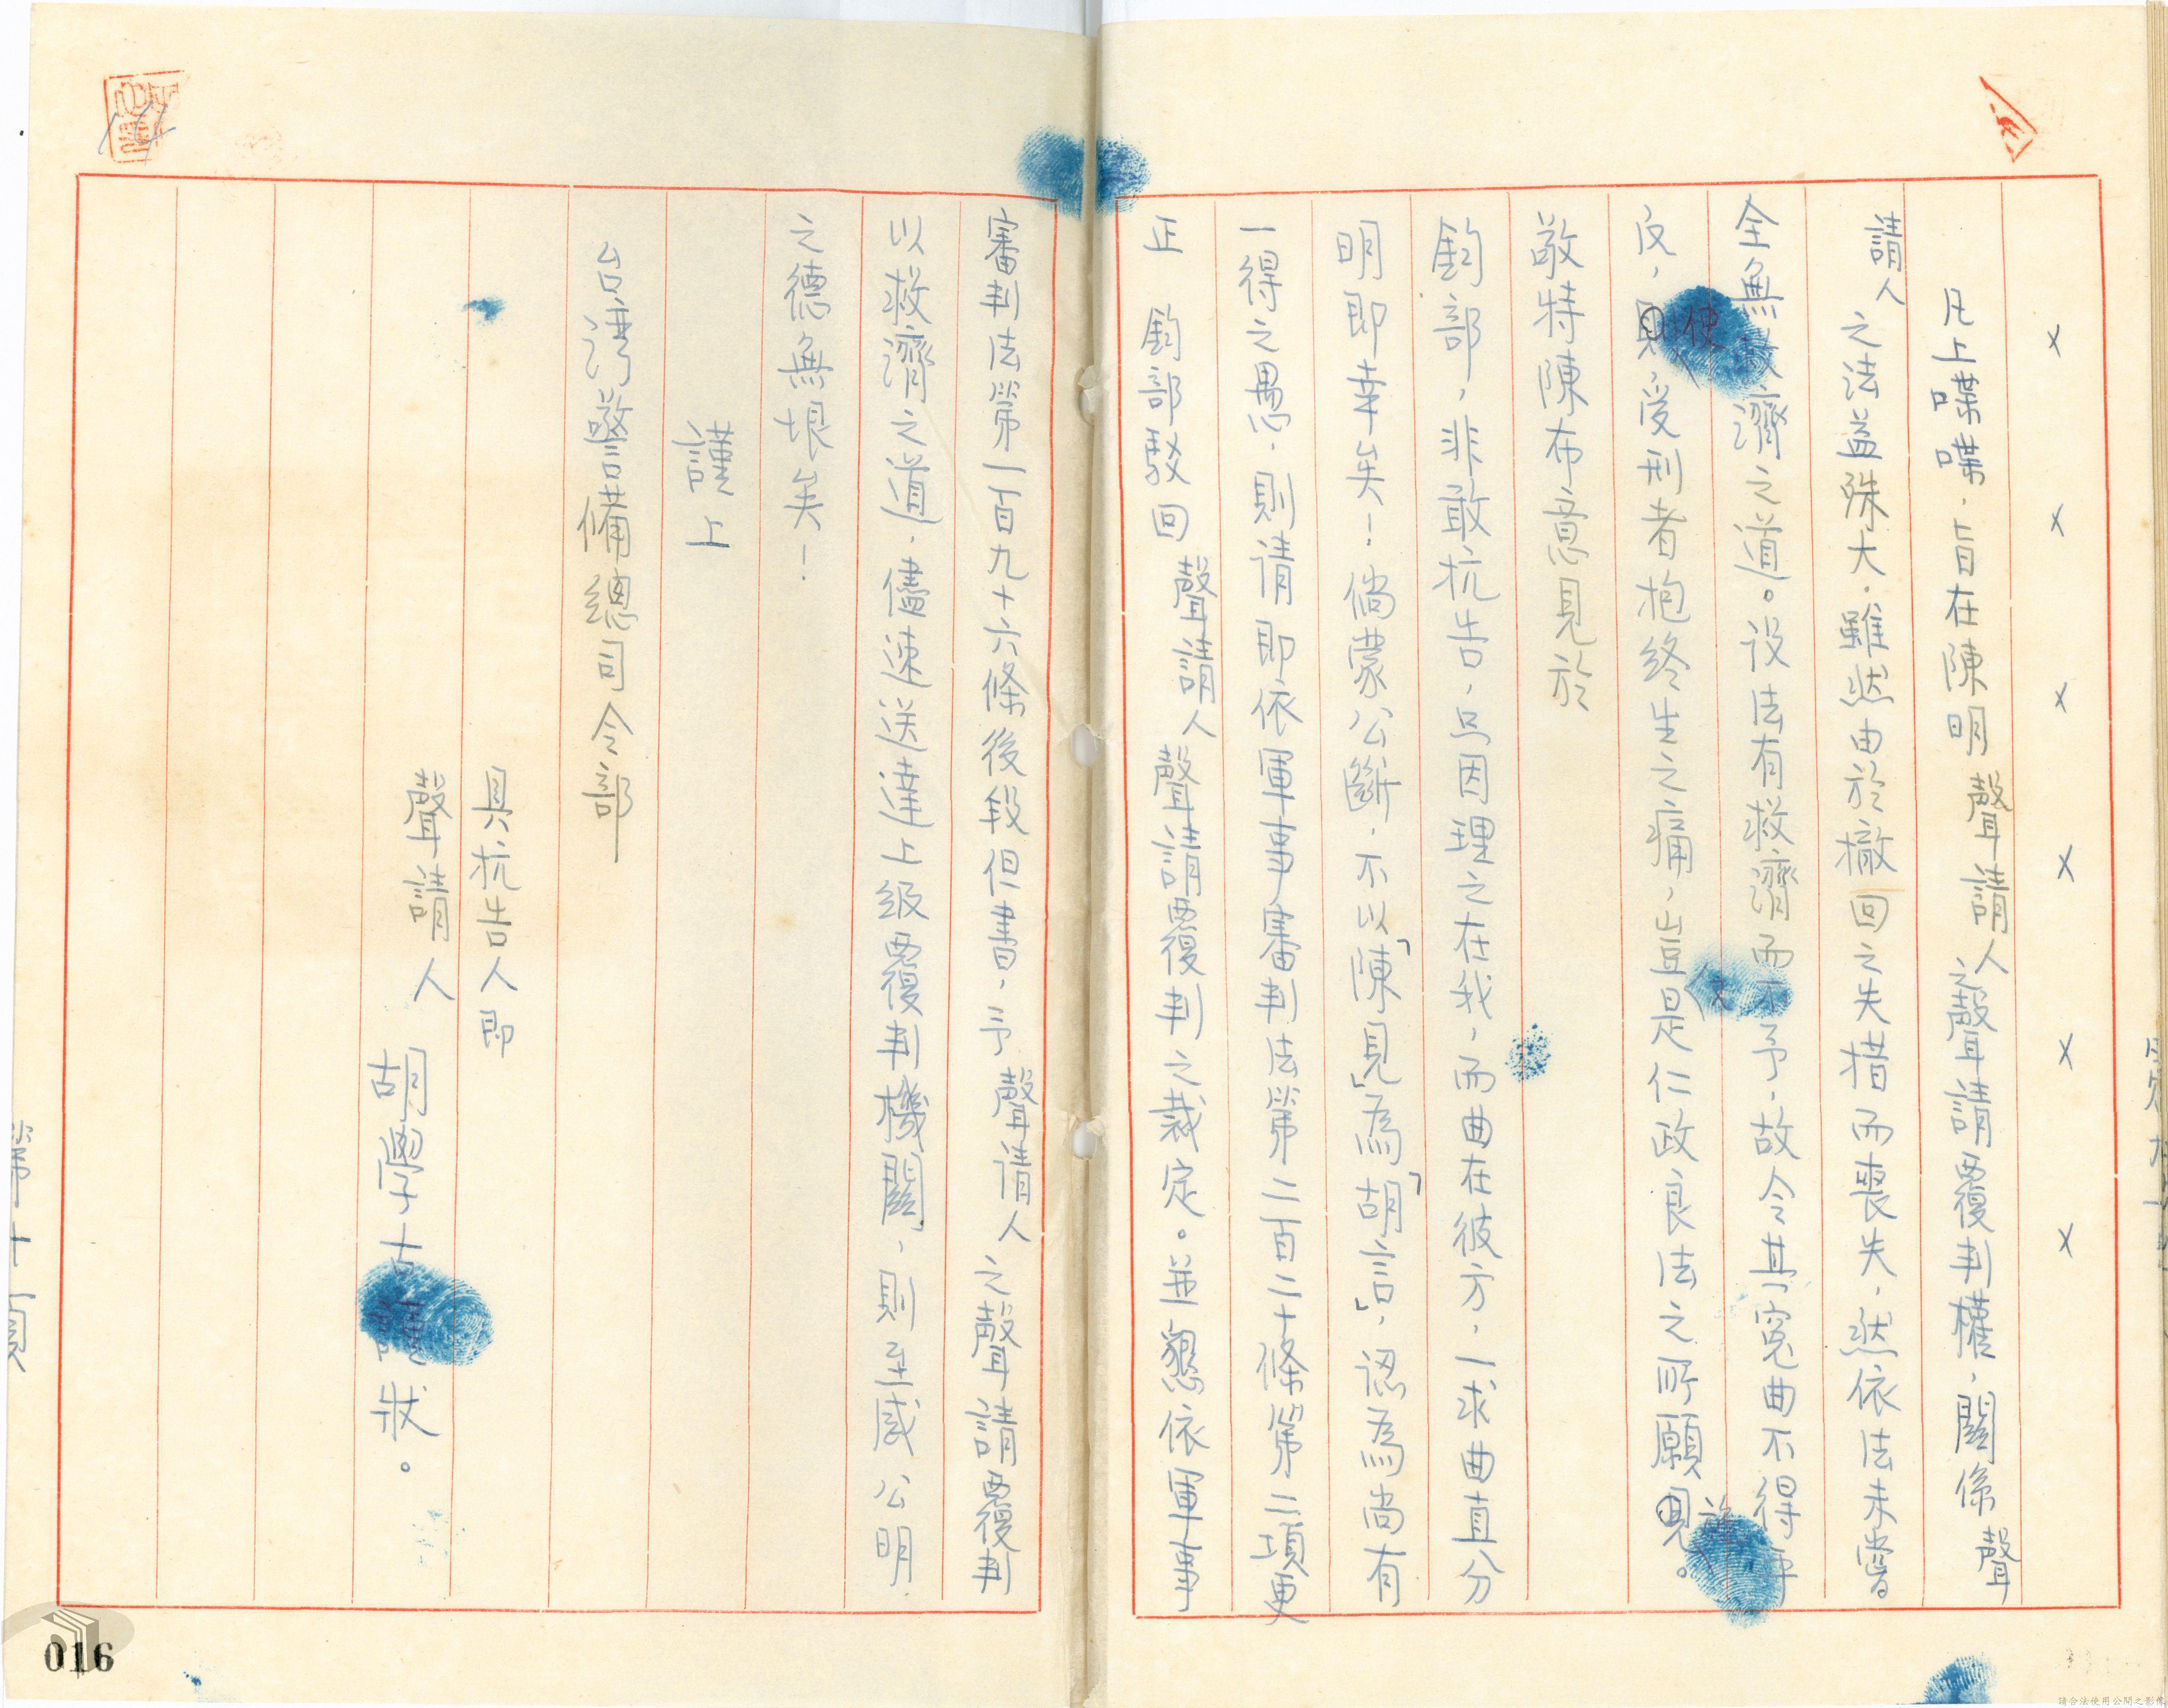 × × × × × ×
凡上喋喋，旨在陳明聲請人之聲請覆判權，關係聲
請人之法益殊大，雖然由於撤回之失措而喪失，然依法未嘗
全無救濟之道。設法有救濟而不予，故令其冤曲不得伸
反，則使受刑者抱終生之痛，豈是仁政良法之所願見。
敬特陳布意見於
鈞部，非敢抗告，只因理之在我，而曲在彼方，一求曲直分
明即幸矣！倘蒙公斷，不以「陳見」為「胡言」，認為尚有
一得之愚，則請即依軍事審判法第二百二十條第二項更
正　鈞部駁回聲請人聲請覆判之裁定。並懇依軍事
審判法第一百九十六條後段但書，予聲請人之聲請覆判
以救濟之道，儘速送達上級覆判機關，則至感公明
之德無垠矣！
謹上
台灣警備總司令部
具抗告人即
聲請人
胡學古　狀。
第十一頁
016
14
請合法使用公開之影像